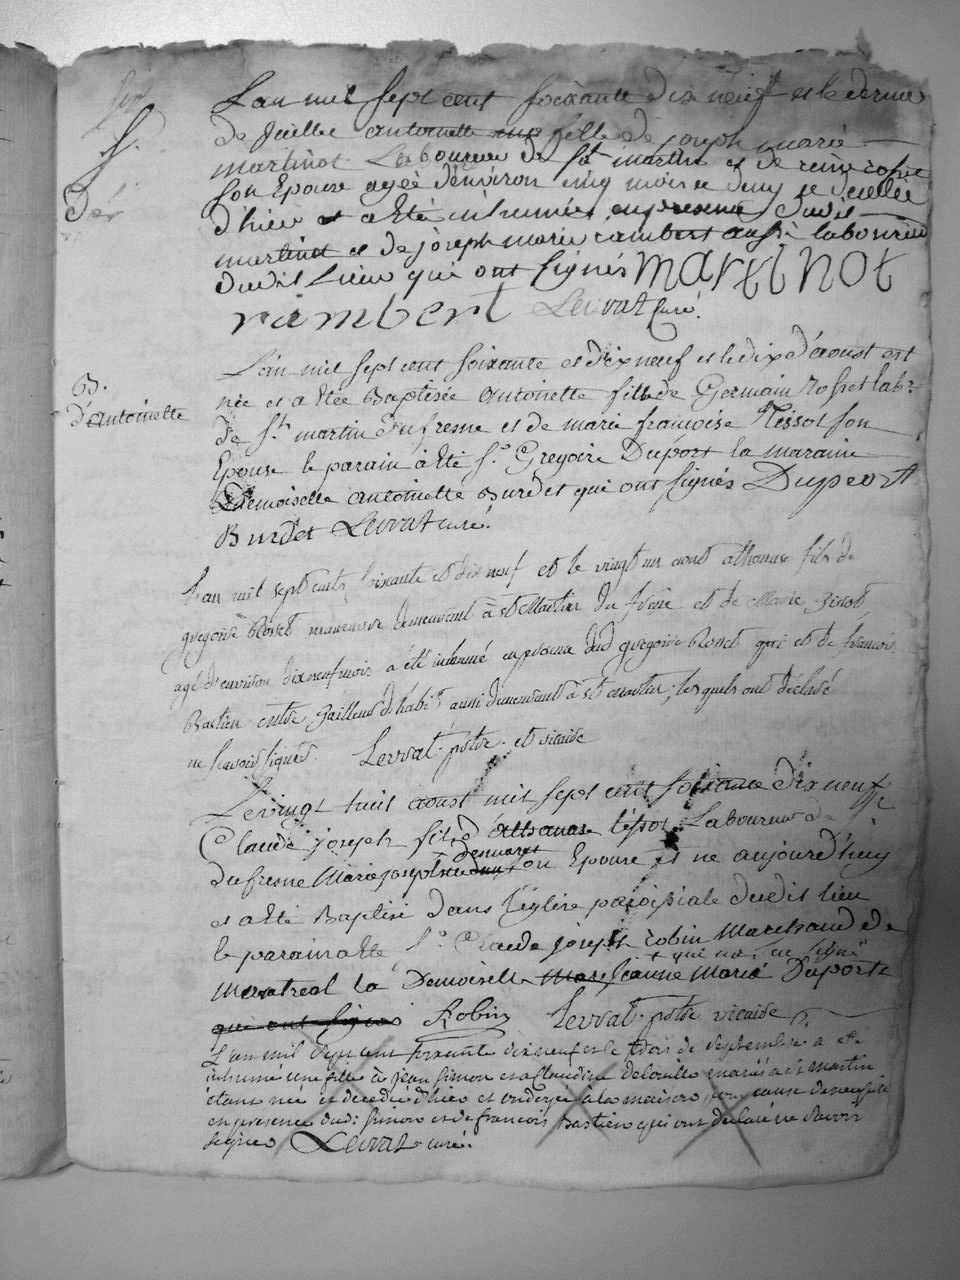 L'an mil sept cent soixante dix neuf et le dernier
de Juillet antoinette fille de joseph marie
martinot Laboureur de St martin et de
son Epouse agée d'environ cinq mois
d'hier a été inhumée en presence dudit
martinot et de joseph marie rambert aussi laboureur
dudit Lieu qui ont signés martinot
rambert Levrat curé.
L'an mil sept cent soixante et dix neuf et le dix d'aoust est
B.
née et a étée Baptisée antoinette fille de Germain Rosset lab.r
d'antoinette
de St martin Dufresne et de marie françoise Tissot son
Epouse le parain à été Sr Gregoire Duport la maraine
Demoiselle antoinette Burdet qui ont signés Duport
Burdet Levrat curé.
L'an mil sept cents soixante et dix neuf et le vingt un aout athanase fils de
gregoire Rosset manoeuvre demeurant à St Martin du frene et de Marie
agé d'environ dix neuf mois a été inhumé en presence dud gregoire Rosset et de francois
Bastien tailleur d'habits aussi demeurant à St martin, lesquels ont déclaré
ne scavoir signer. Levrat ptre et vicaire
Le vingt huit aoust mil sept cent soixante dix neuf
Claude joseph fils d'athanase tissot Laboureur de St
dufresne Marie josephte son Epouse et ne aujourd'huy
et a été Baptisé dans l'église paroissiale dudit lieu
le parain a été Sr Claude joseph robin Marchand de
montreal la Demoiselle Jeanne Marie Duporte
qui ont signés Robin Levrat ptre vicaire
L'an mil sept cent soixante dix neuf et le trois de septembre a été
inhumé une fille à jean Simon et a Claudine mariés a st martin
étant née et decedée d'hier et ondoyée à la maison pour cause de necessité
en presence dudit Simon et de francois Bastien qui ont declaré ne savoir
signer Levrat curé.